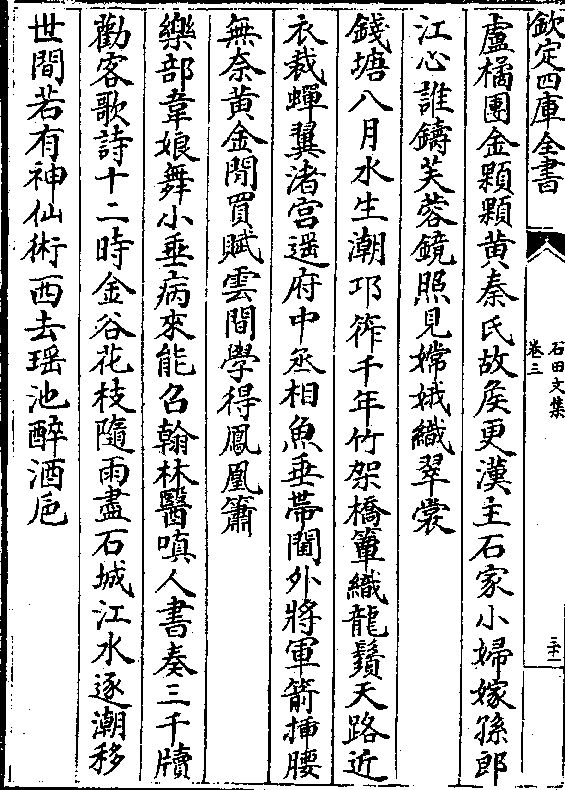 欽定四庫全書
石田文集
卷三
三十二
盧橘團金顆顆黄秦氏故侯更漢主石家小婦嫁孫郎
江心誰鑄芙蓉鏡照見嫦娥織翠裳
錢塘八月水生潮邛筰千年竹架橋簟織龍鬚天路近
衣裁蟬翼渚宫遥府中丞相魚垂帶閫外將軍箭揷腰
無奈黄金閒買賦雲間學得鳳凰簫
樂部韋娘舞小垂病來能召翰林醫嗔人書奏三千牘
勸客歌詩十二時金谷花枝隨雨盡石城江水逐潮移
世間若有神仙術西去瑶池醉酒巵